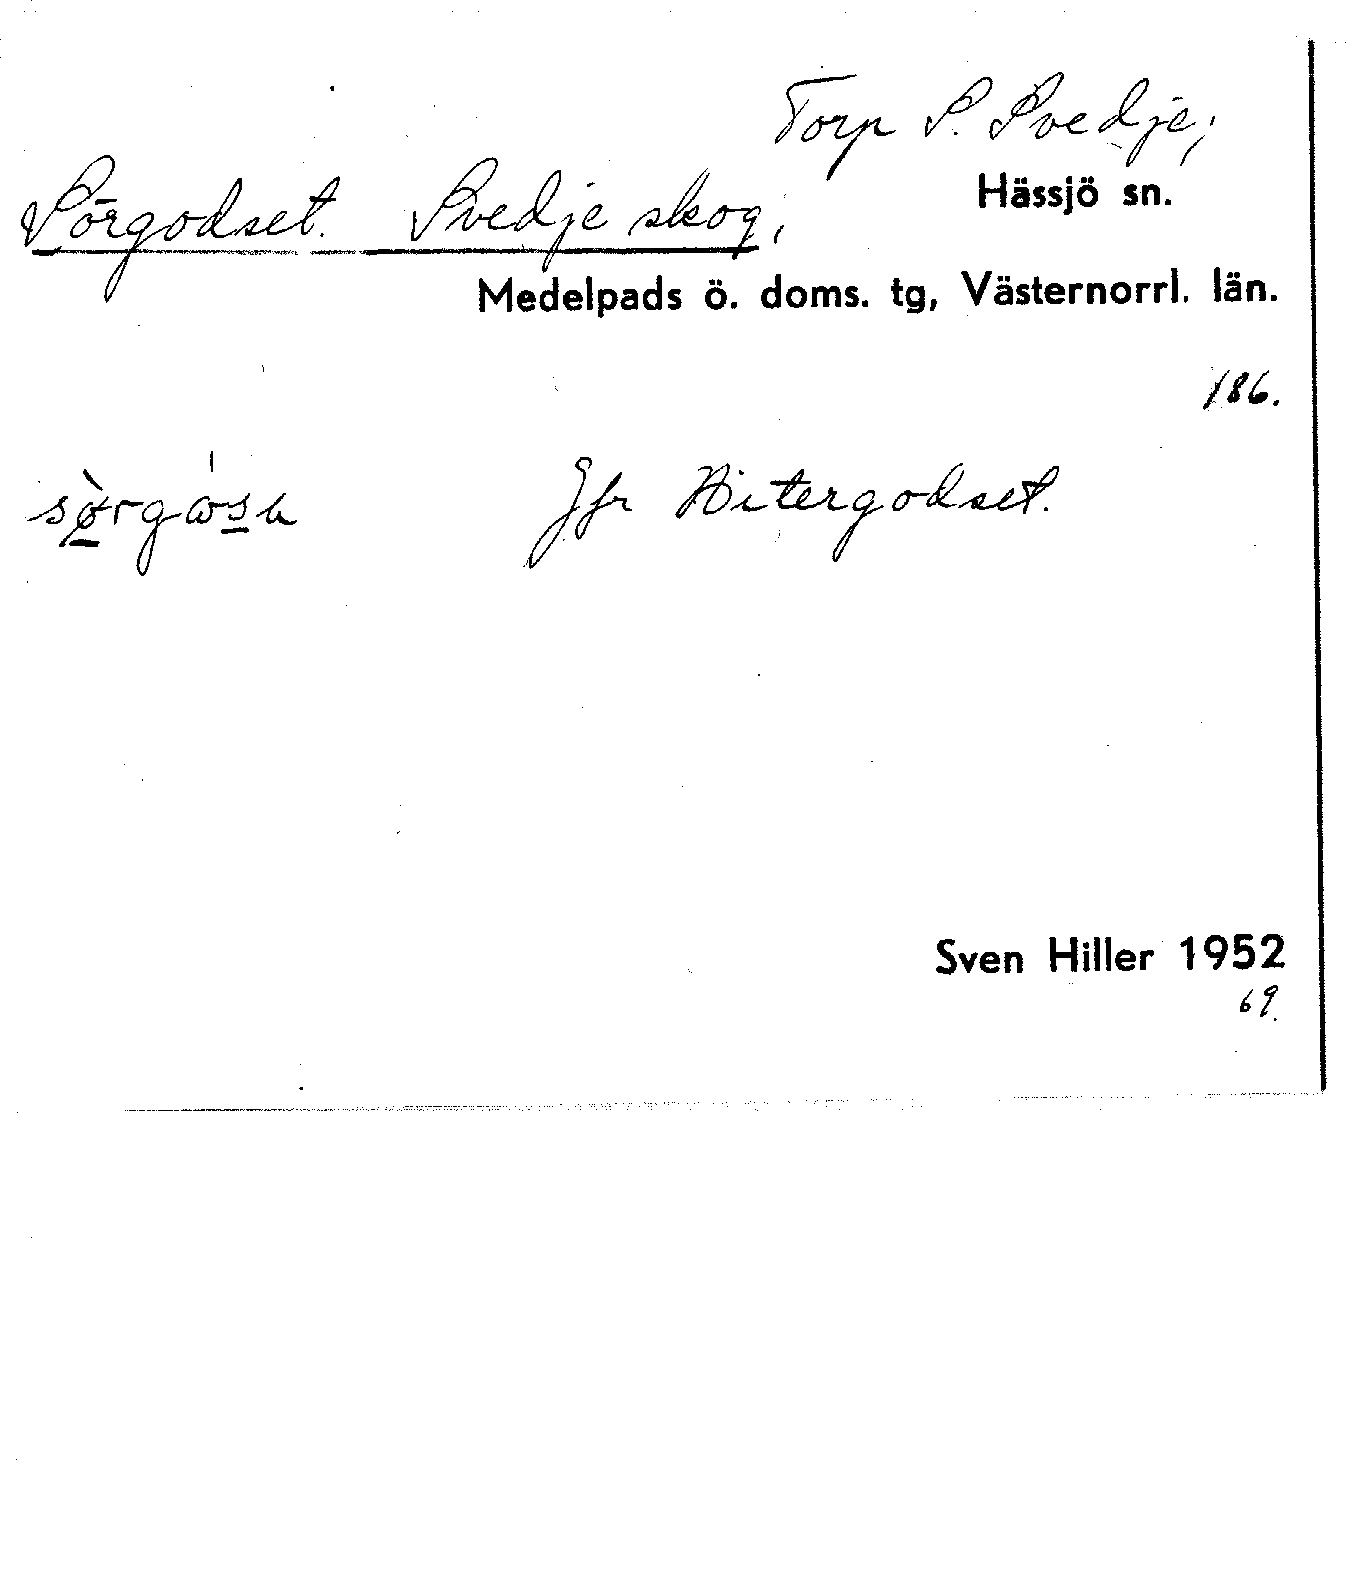 Torp S. Svedje,
Sörgodset. Svedje skog,
Hässjö sn.
Medelpads ö. doms. tg, Västernorrl. län.
186.
Jfr Hitergodset.
Sven Hiller 1952
69.